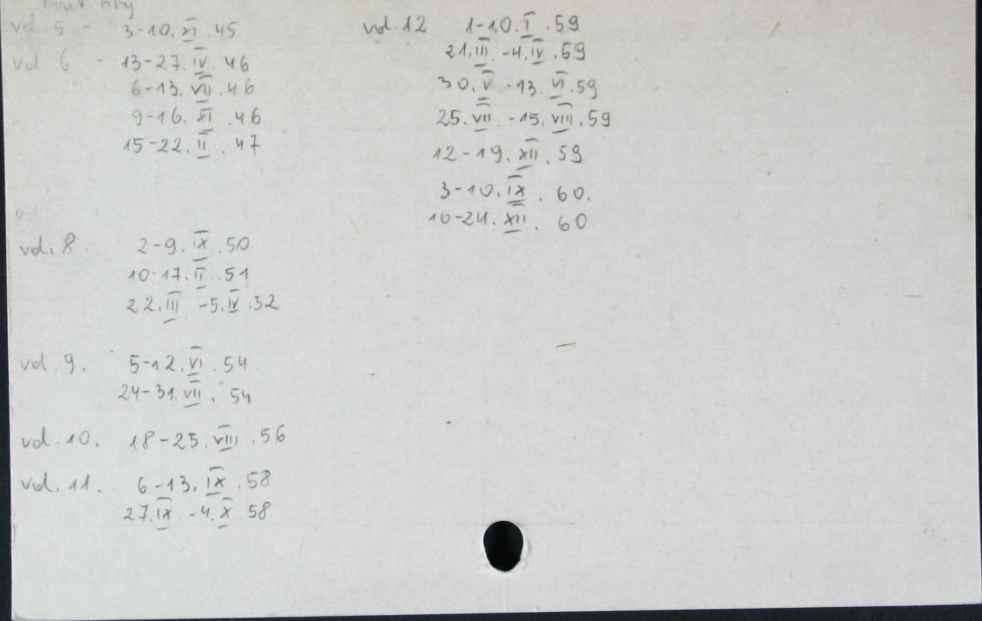 vol. 5 - 3-10. XI. 45
vol 6 - 13-27. IV. 46
6-13. VII. 46
9-16. XI. 46
15-22. II. 47
vol. 8. 2-9. IX. 50
10-17. II. 51
22. III - 5. IV. 52
vol. 9. 5-12. VI. 54
24-31. VII. 54
vol. 10. 18-25. VIII. 56
vol. 11. 6-13. IX. 58
27. IX - 4. X 58
vol. 12 1-10. I. 59
21. III. - 4. IV. 59
30. V - 13. VI. 59
25. VII. - 15. VIII. 59
12-19. XII. 59
3-10. IX. 60.
10-24. XII. 60